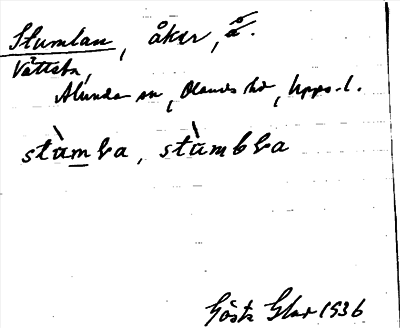 Stumlan, åker, å.
Vättsta,
Alunda sn, Olands hd, Upps. l.
stùmba, stùmbba
Gösta Glad 1936